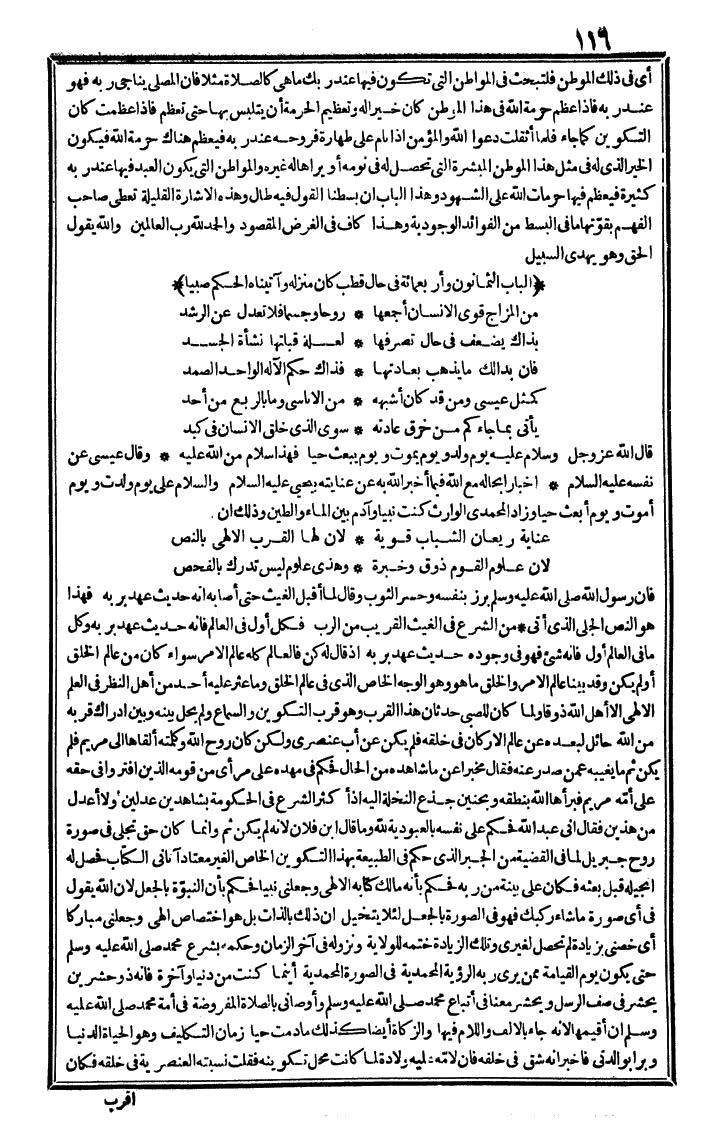 ١١٦
أى فى ذلك الموطن فلتبحث فى المواطن التى تكون فيها عند ربك ما هى كالصلاة مثلا فان المصلى يناجى ربه فهو
عند ربه فاذا عظم حرمة الله فى هذا الموطن كان خيرا له وتعظيم الحرمة أن يتلبس بها حتى تعظم فاذا عظمت كان
التكوين كما جاء فلما أثقلت دعوا الله والمؤمن اذا نام على طهارة فروحه عند ربه فيعظم هناك حرمة الله فيكون
الخير الذى له فى مثل هذا الموطن المبشرة التى تحصل له فى نومه أو يراها له غيره والمواطن التى يكون العبد فيها عند ربه
كثيرة فيعظم فيها حرمات الله على الشهود وهذا الباب ان بسطنا القول فيه طال وهذه الاشارة القليلة تعطى صاحب
الفهم بقوتها ما فى البسط من الفوائد الوجودية وهذا كاف فى الغرض المقصود والحمد لله رب العالمين والله يقول
الحق وهو يهدى السبيل
﴿الباب الثمانون وأربعمائة فى حال قطب كان منزله وآتيناه الحكم صبيا﴾
من المزاج قوى الانسان أجمعها * روحا وجسما فلا تعدل عن الرشد
بذاك يضعف فى حال تصرفها * لعلة قبلتها نشأة الجسد
فان بدا لك ما يذهب بعادتها * فذاك حكم الآله الواحد الصمد
كمثل عيسى ومن قد كان أشبهه * من الاناسى وما بالربع من أحد
يأتى بما جاءكم من خرق عادته * سوى الذى خلق الانسان فى كبد
قال الله عز وجل وسلام عليه يوم ولد ويوم يموت ويوم يبعث حيا فهذا سلام من الله عليه * وقال عيسى عن
نفسه عليه السلام * اخبارا بحاله مع الله فيما أخبر الله به عن عنايته بيحيى عليه السلام والسلام على يوم ولدت ويوم
أموت ويوم أبعث حيا وزاد المحمدى الوارث كنت نبيا وآدم بين الماء والطين وذلك ان.
عناية ريعان الشباب قوية * لان لها القرب الالهى بالنص
لان علوم القوم ذوق وخبرة * وهذى علوم ليس تدرك بالفحص
فان رسول الله صلى الله عليه وسلم برز بنفسه وحسر الثوب وقال لما أقبل الغيث حتى أصابه انه حديث عهد بربه فهذا
هو النص الجلى الذى أتى * من الشرع فى الغيث القريب من الرب فكل أول فى العالم فانه حديث عهد بربه وكل
ما فى العالم أول فانه شئ فهو فى وجوده حديث عهد بربه اذ قال له كن فالعالم كله عالم الامر سواء كان من عالم الخلق
أو لم يكن وقد بينا عالم الامر والخلق ما هو وهو الوجه الخاص الذى فى عالم الخلق وما عثر عليه أحد من أهل النظر فى العلم
الالهى الا أهل الله ذوقا ولما كان للصبى حدثان هذا القرب وهو قرب التكوين والسماع ولم يحل بينه وبين ادراك قربه
من الله حائل لبعده عن عالم الاركان فى خلقه فلم يكن عن أب عنصرى ولكن كان روح الله وكلمته ألقاها الى مريم فلم
يكن ثم ما يغيبه عمن صدر عنه فقال مخبرا عن ما شاهده من الحال فحكم فى مهده على مرأى من قومه الذين افتروا فى حقه
على أمه مريم فبرأها الله بنطقه وبحنين جذع النخلة اليه اذ أكثر الشرع فى الحكومة بشاهدين عدلين ولا أعدل
من هذين فقال انى عبد الله فحكم على نفسه بالعبودية لله وما قال ابن فلان لانه لم يكن ثم وانما كان حق تجلى فى صورة
روح جبريل لما فى القضية من الجبر الذى حكم فى الطبيعة بهذا التكوين الخاص الغير معتاد آتانى الكتاب فحصل له
انجيله قبل بعثه فكان على بينة من ربه فحكم بأنه مالك كتابه الالهى وجعلنى نبيا فحكم بأن النبوة بالجعل لان الله يقول
فى أى صورة ما شاء ركبك فهو فى الصورة بالجعل لئلا يتخيل ان ذلك بالذات بل هو اختصاص الهى وجعلنى مباركا
أى خصنى بزيادة لم تحصل لغيرى وتلك الزيادة ختمه للولاية ونزوله فى آخر الزمان وحكمه بشرع محمد صلى الله عليه وسلم
حتى يكون يوم القيامة ممن يرى ربه الرؤية المحمدية فى الصورة المحمدية أينما كنت من دنيا وآخرة فانه ذو حشرين
يحشر فى صف الرسل ويحشر معنا فى أتباع محمد صلى الله عليه وسلم وأوصانى بالصلاة المفروضة فى أمة محمد صلى الله عليه
وسلم ان أقيمها لانه جاء بالالف واللام فيها والزكاة أيضا كذلك ما دمت حيا زمان التكليف وهو الحياة الدنيا
وبرا بوالدتى فاخبر انه شق فى خلقه فان لامه عليه ولادة لما كانت محل تكوينه فقلت نسبته العنصرية فى خلقه فكان
اقرب